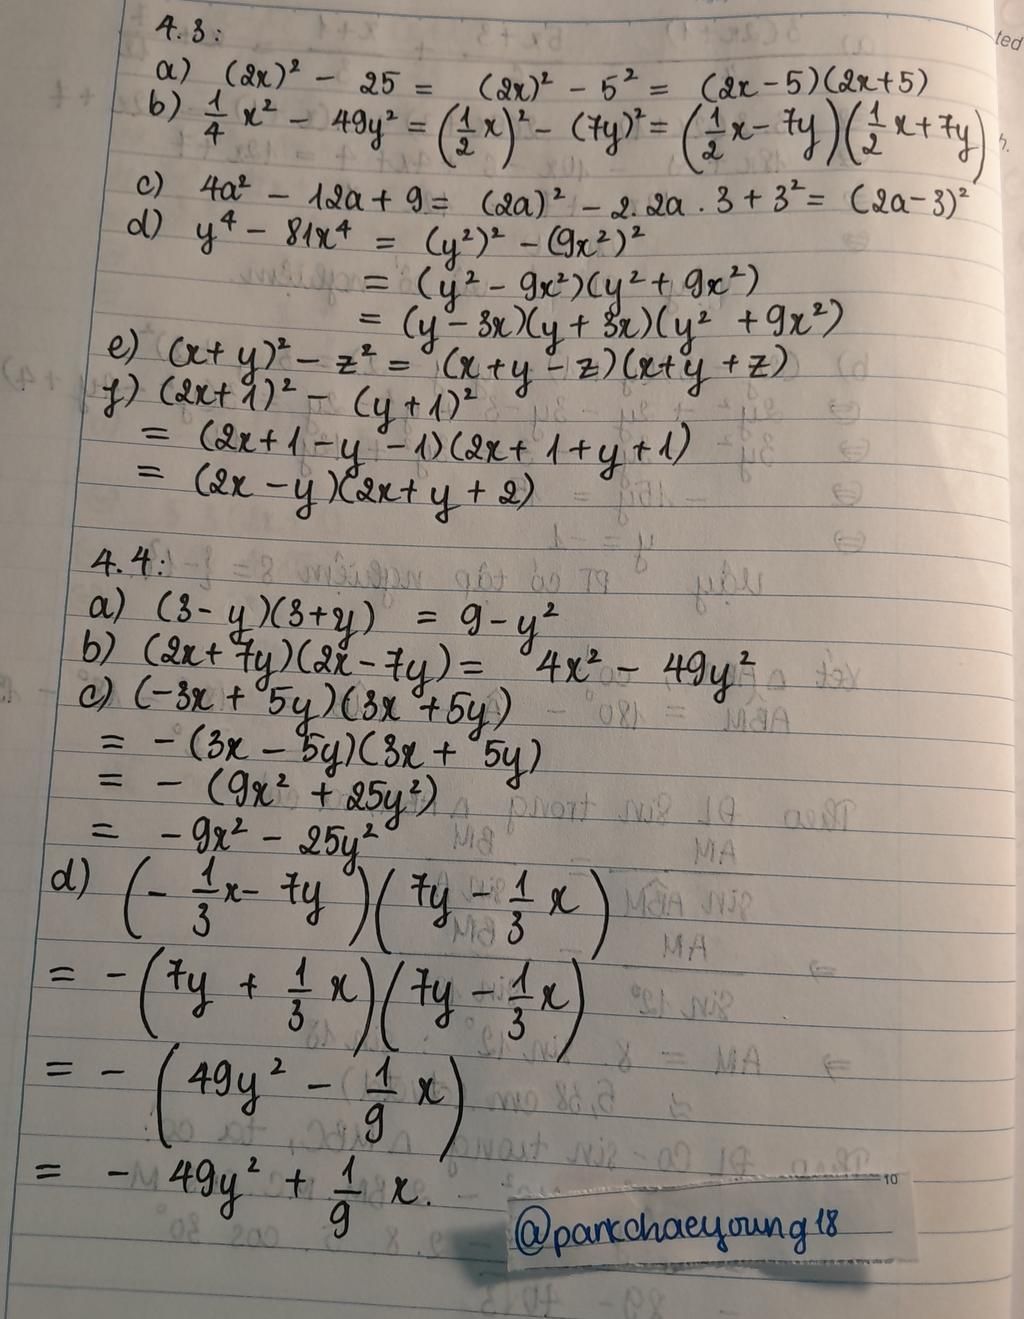 4.3:
a) (2x)² - 25 = (2x)² - 5² = (2x-5)(2x+5)
b) 1/4 x² - 49y² = (1/2 x)² - (7y)² = (1/2 x - 7y)(1/2 x + 7y)
c) 4a² - 12a + 9 = (2a)² - 2.2a . 3 + 3² = (2a-3)²
d) y⁴ - 81x⁴ = (y²)² - (9x²)²
= (y² - 9x²)(y² + 9x²)
= (y - 3x)(y + 3x)(y² + 9x²)
e) (x+y)² - z² = (x+y-z)(x+y+z)
f) (2x+1)² - (y+1)²
= (2x+1-y-1)(2x+1+y+1)
= (2x-y)(2x+y+2)
4.4:
a) (3-y)(3+y) = 9-y²
b) (2x+7y)(2x-7y) = 4x² - 49y²
c) (-3x + 5y)(3x+5y)
= -(3x - 5y)(3x + 5y)
= - (9x² + 25y²)
= -9x² - 25y²
d) (- 1/3 x - 7y)(7y - 1/3 x)
= -(7y + 1/3 x)(7y - 1/3 x)
= - (49y² - 1/9 x)
= - 49y² + 1/9 x.
10
@parkchaeyoung18